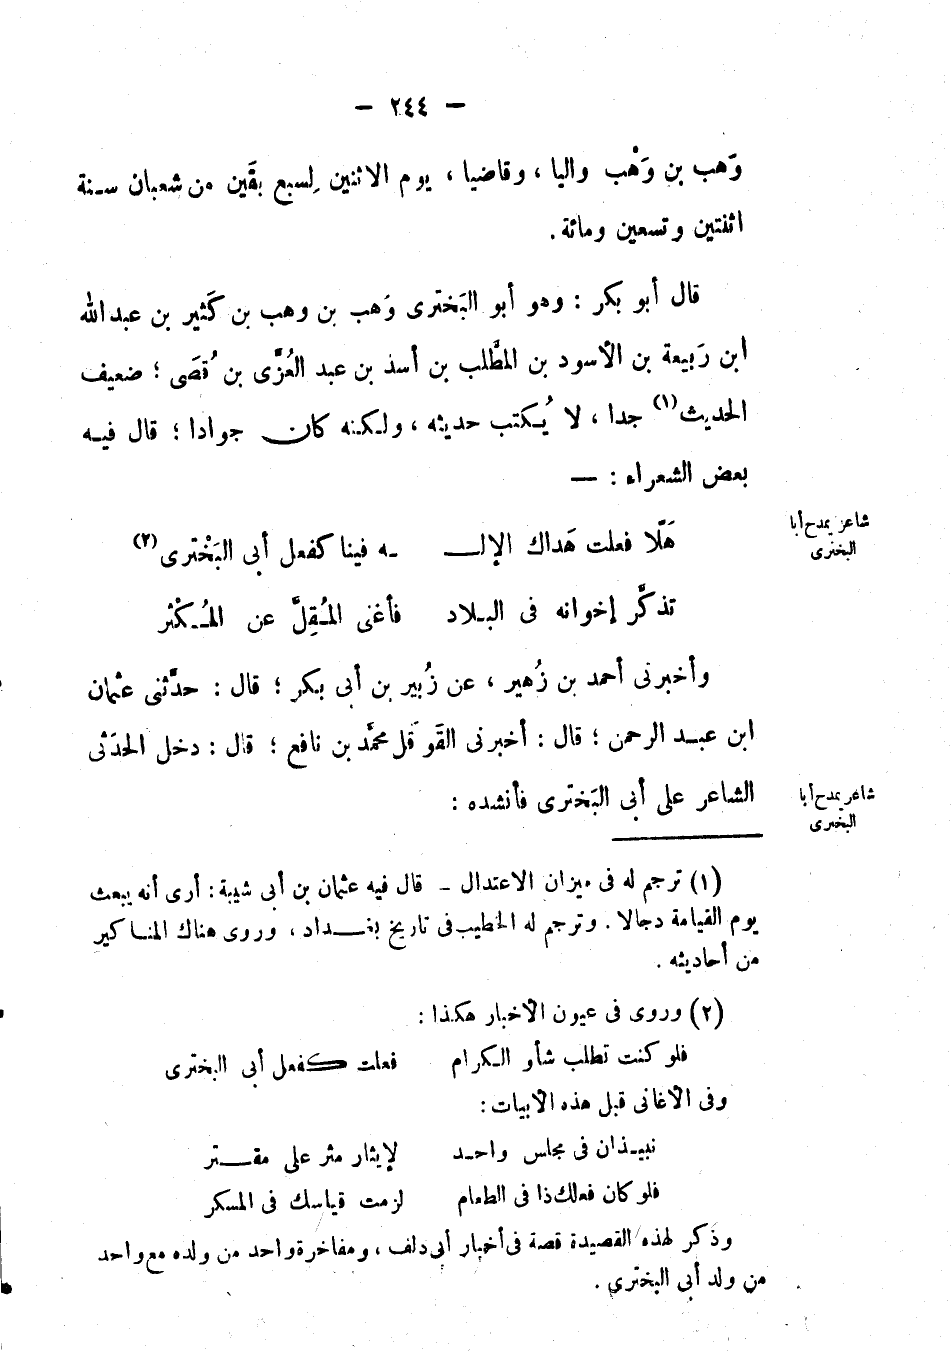 — ٢٤٤ —
وَهب بن وَهْب واليا ، وقاضيا ، يوم الاثنين لِسبع بقَين من شعبان سـنة
اثنتين وتسعين ومائة .
قال أبو بكر : وهو أبو البَختَرى وَهب بن وهب بن كَثير بن عبد الله
ابن رَبيعة بن الأسود بن المطَّلب بن أسذ بن عبد العُزَّى بن قُصَى ؛ ضعيف
الحديث(١) جدا ، لا يُكتب حديثه ، ولـكـنه كان جوادا ؛ قال فيـه
بعض الشعراء : —
شاعر يمدح أبا
البخترى
هَلّا فعلت هَداك الإلـــ ـه فينا كفعل أبى البَخْتَرى(٢)
تذكَّر إخوانه فى البـلاد فأغنى المُـقِلَّ عن المُـكْثر
وأخبرنى أحمد بن زُهير ، عن زُبير بن أبى بـكر ؛ قال : حدَّثنى عثمان
ابن عبـد الرحمن ؛ قال : أخبرنى القَوقَل محمَّد بن نافع ؛ قال : دخل الحدَثى
الشاعر على أبى البَختَرى فأنشده :
شاعر يمدح أبا
البخترى
(١) ترجم له فى ميزان الاعتدال - قال فيه عثمان بن أبى شيبة : أرى أنه يبعث
يوم القيامة دجالا . وترجم له الخطيب فى تاريخ بغـداد ، وروى هناك المنـاكير
من أحاديثه .
(٢) وروى فى عيون الأخبار هكذا :
فلو كنت تطلب شأو الـكرام فعلت كفعل أبى البخترى
وفى الأغانى قبل هذه الأبيات :
نبيـذان فى مجلس واحـد لإيثار مثر على مقـتر
فلو كان فعلك ذا فى الطعام لزمت قياسك فى المسكر
وذكر لهذه القصيدة قصة فى أخبار أبى دلف ، ومفاخرة واحد من ولده مع واحد
من ولد أبى البخترى .